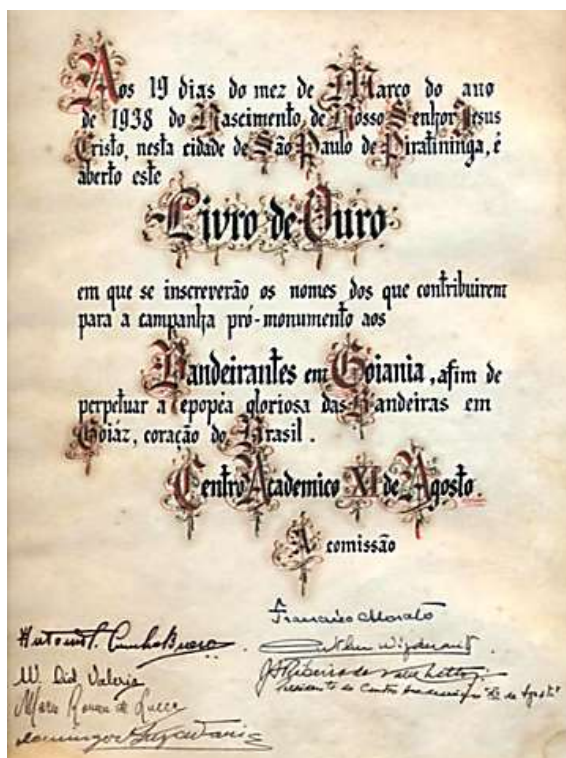 Aos 19 dias do mez de Março do ano
de 1938 do Nascimento de Nosso Senhor Jesus
Cristo, nesta cidade de São Paulo de Piratininga, é
aberto este
Livro de Ouro
em que se inscreverão os nomes dos que contribuirem
para a campanha pró-monumento aos
Bandeirantes em Goiania, afim de
perpetuar a epopéa gloriosa das Bandeiras em
Goiáz, coração do Brasil.
Centro Academico XI de Agosto.
A comissão
Francisco Morato
Antonio S. Cunha Bueno
Presidente do Centro Academico "XI de Agosto"